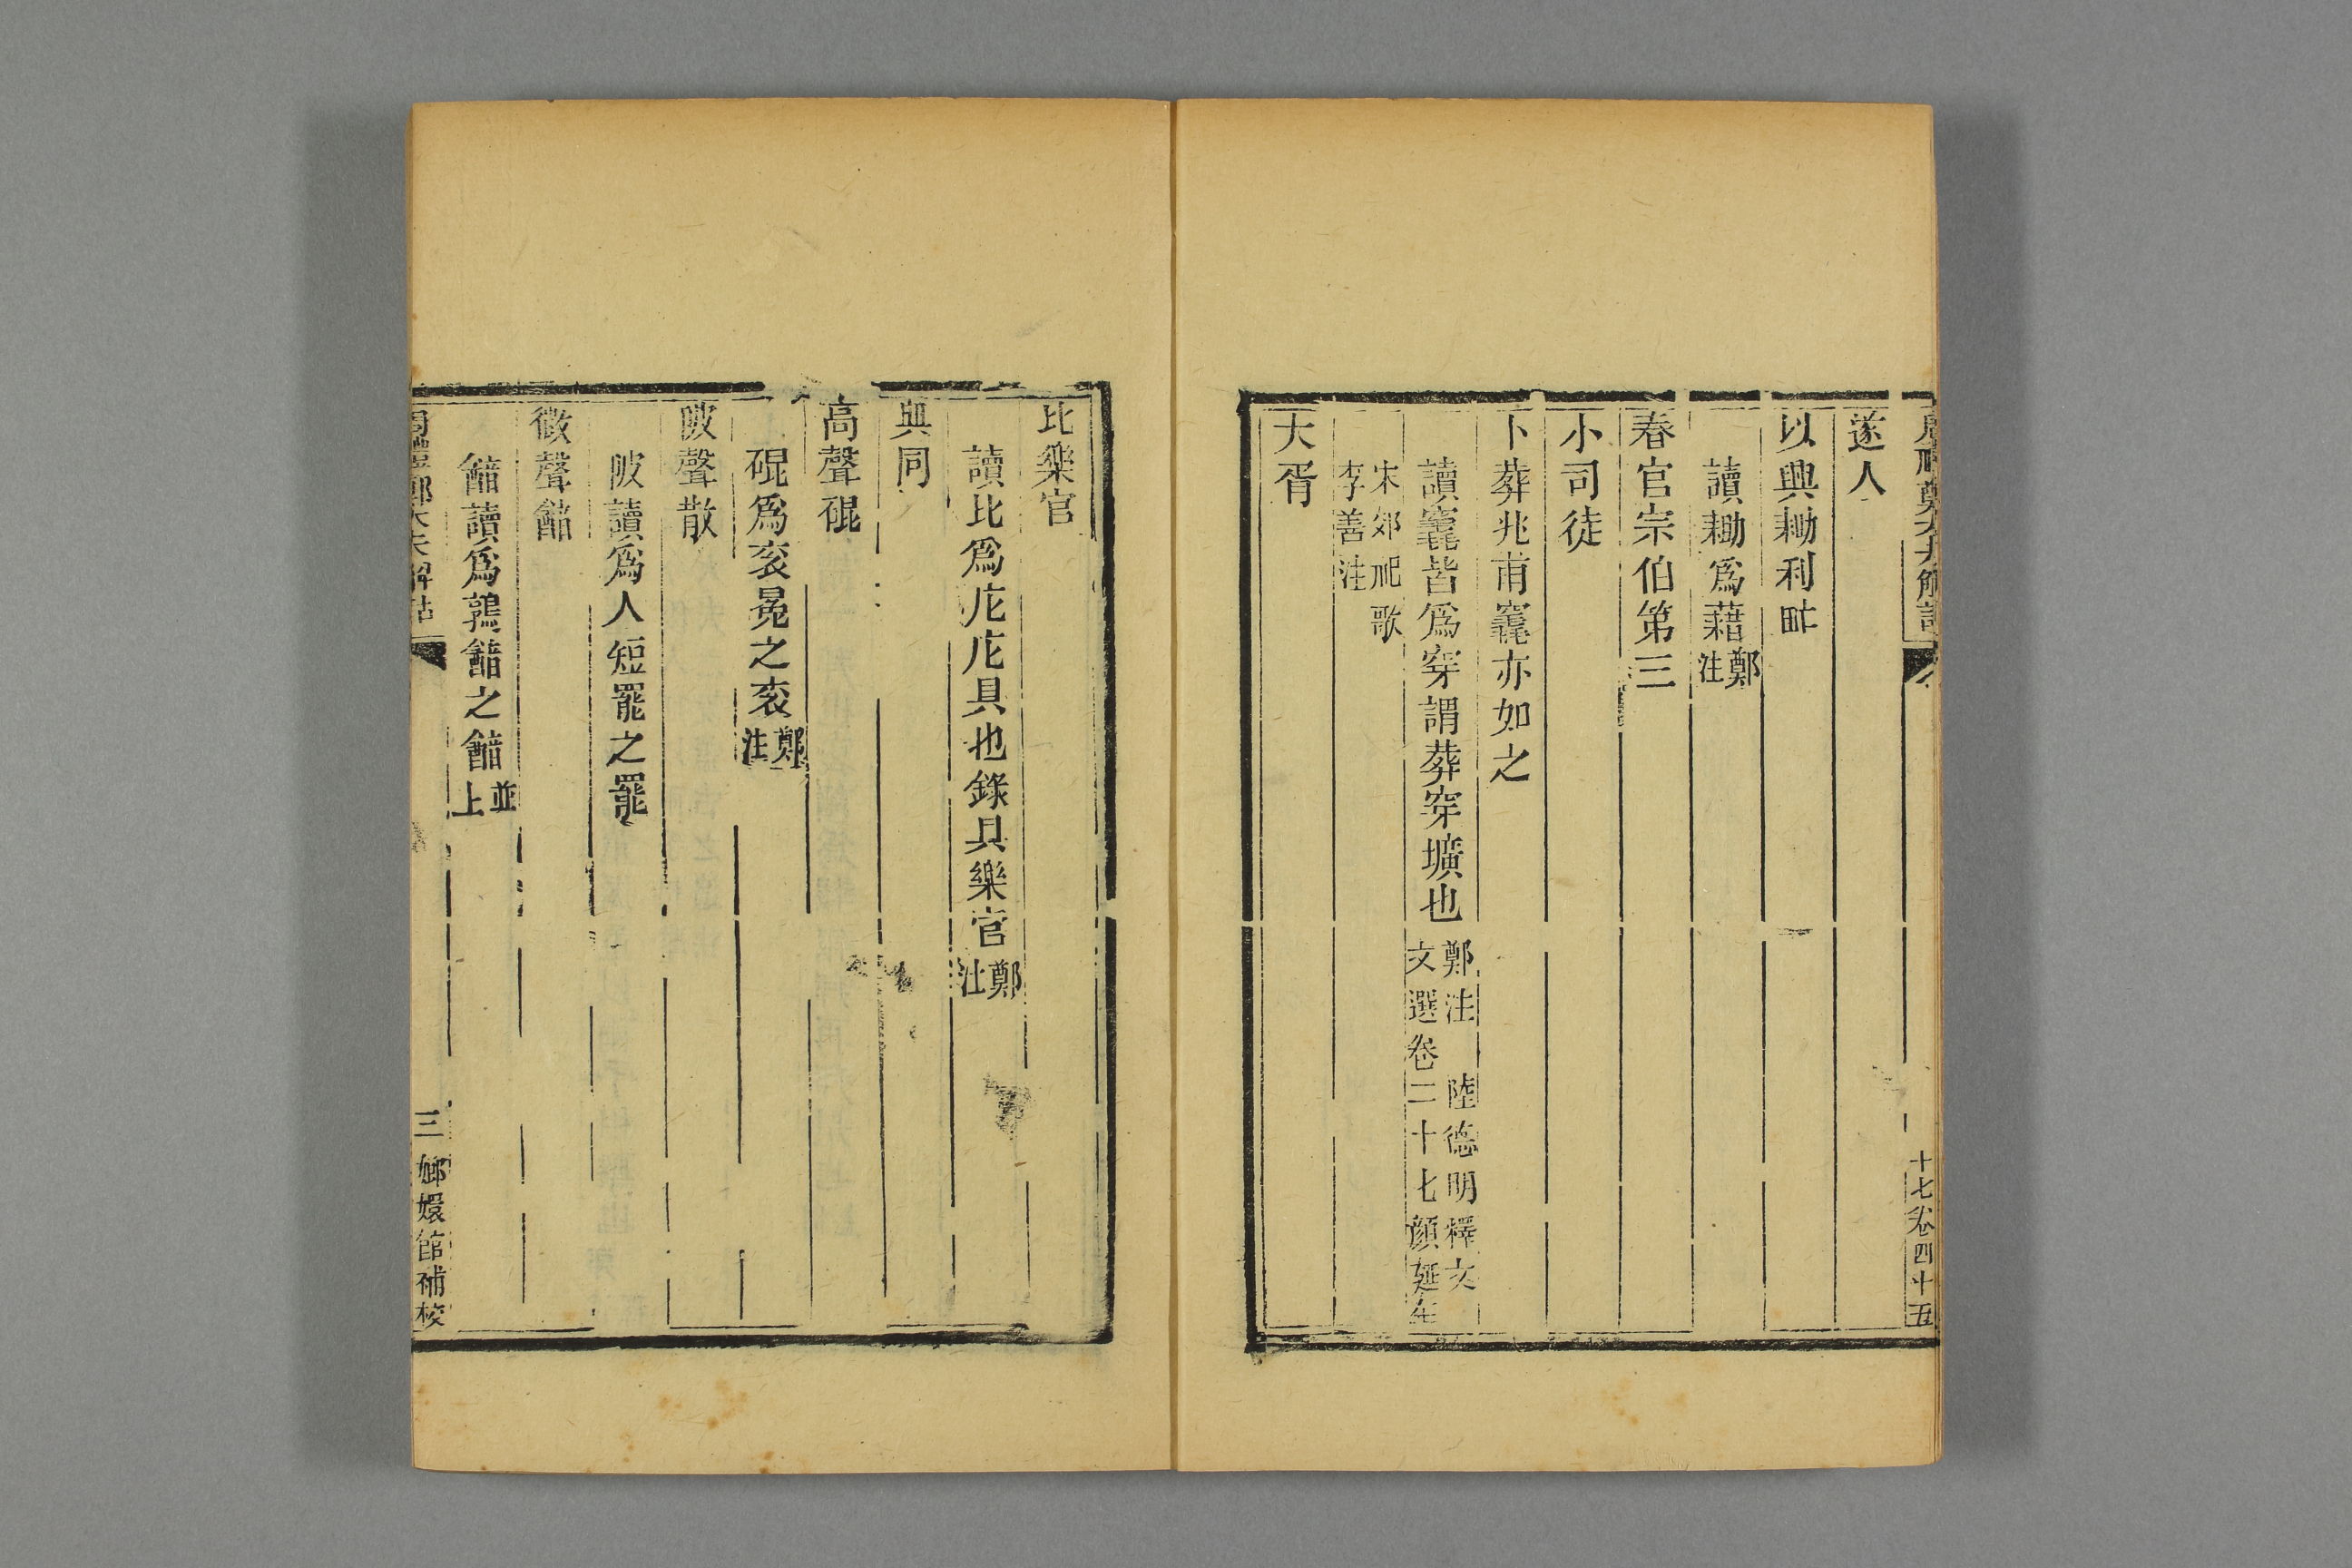 周禮鄭大夫解詁
十七卷四十五
遂人
以興耡利甿
讀耡爲藉鄭注
春官宗伯第三
小司徒
卜葬兆甫竁亦如之
讀竁皆爲穿謂葬穿壙也鄭注 陸德明釋文
文選卷二十七顏延年
宋郊祀歌
李善注
大胥
比樂官
讀比爲庀庀具也錄具樂官鄭注
典同
高聲䃂
䃂爲衮冕之衮鄭注
陂聲散
陂讀爲人短罷之罷
微聲韽
韽讀爲鶉韽之韽並上
周禮鄭大夫解詁
三
嫏嬛館補校